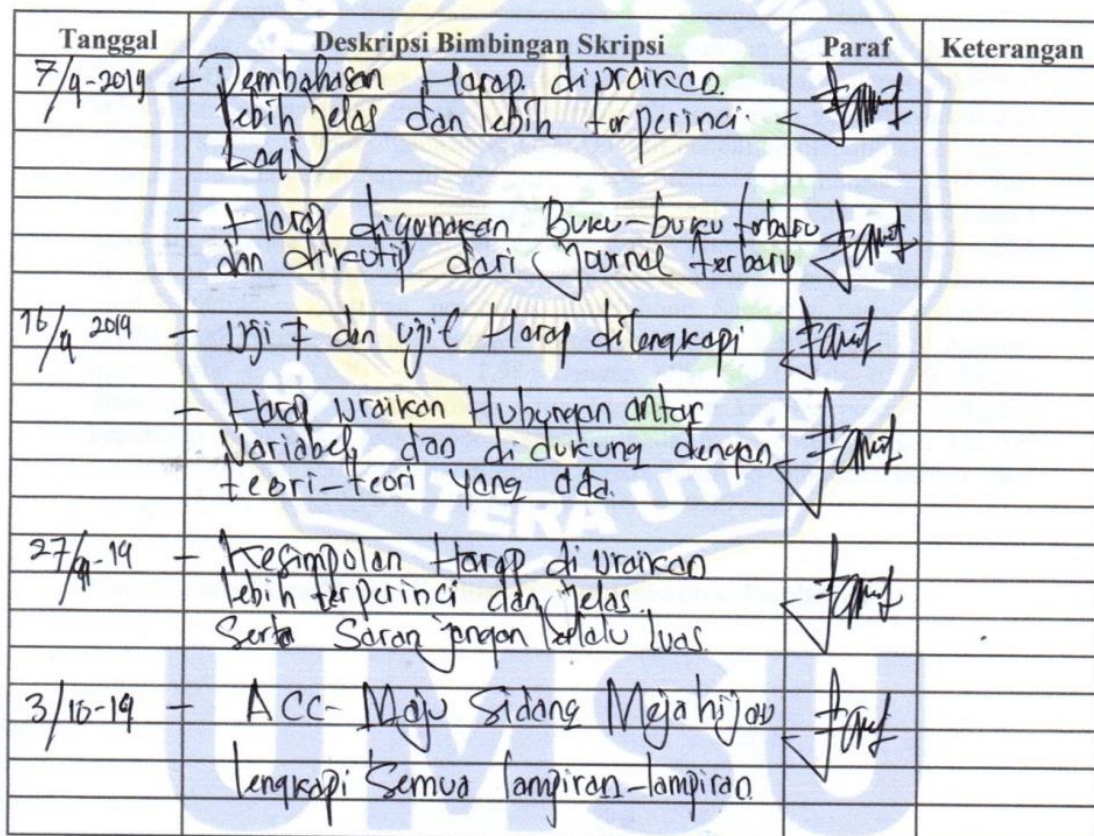 Tanggal Deskripsi Bimbingan Skripsi Paraf Keterangan
7/9-2019 - Pembahasan Harap diuraikan
lebih jelas dan lebih terperinci
Lagi
- Harap digunakan Buku-buku terbaru
dan dikutip dari Journal terbaru
16/9 2019 - Uji F dan Uji t Harap dilengkapi
- Harap uraikan Hubungan antar
Variabel, dan didukung dengan
teori-teori yang ada.
27/9-19 - Kesimpulan Harap diuraikan
lebih terperinci dan jelas.
Serta Saran jangan terlalu luas.
3/10-19 - ACC- Maju Sidang Meja hijau
lengkapi Semua lampiran-lampiran
UMSU